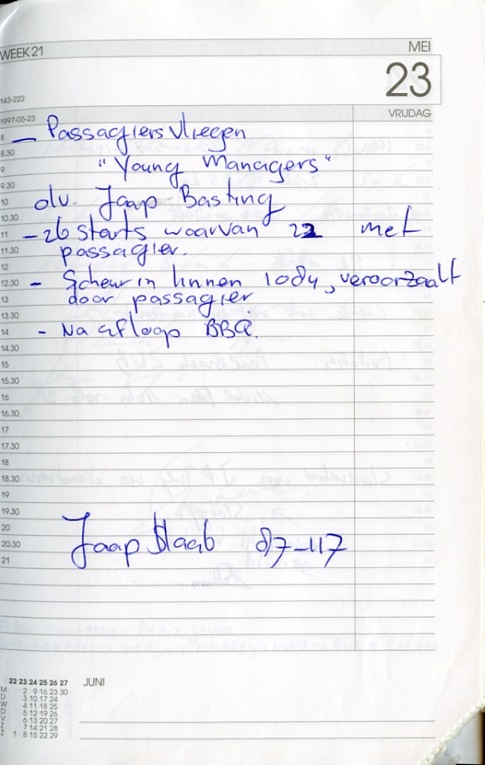 WEEK 21
MEI
23
143-222
VRIJDAG
1997-05-23
8 — Passagiersvliegen
8.30
"Young Managers"
9
9.30
10 olv. Jaap Basting
10.30
11 - 26 starts waarvan 22 met
11.30 passagier.
12
12.30 - Scheur in linnen 1084, veroorzaakt
13 door passagier
13.30
14 - Na afloop BBQ.
14.30
15
15.30
16
16.30
17
17.30
18
18.30
19
19.30
20
20.30 Jaap 87-117
21
22 23 24 25 26 27 JUNI
M 2 9 16 23 30
D 3 10 17 24
W 4 11 18 25
D 5 12 19 26
V 6 13 20 27
Z 7 14 21 28
Z 1 8 15 22 29